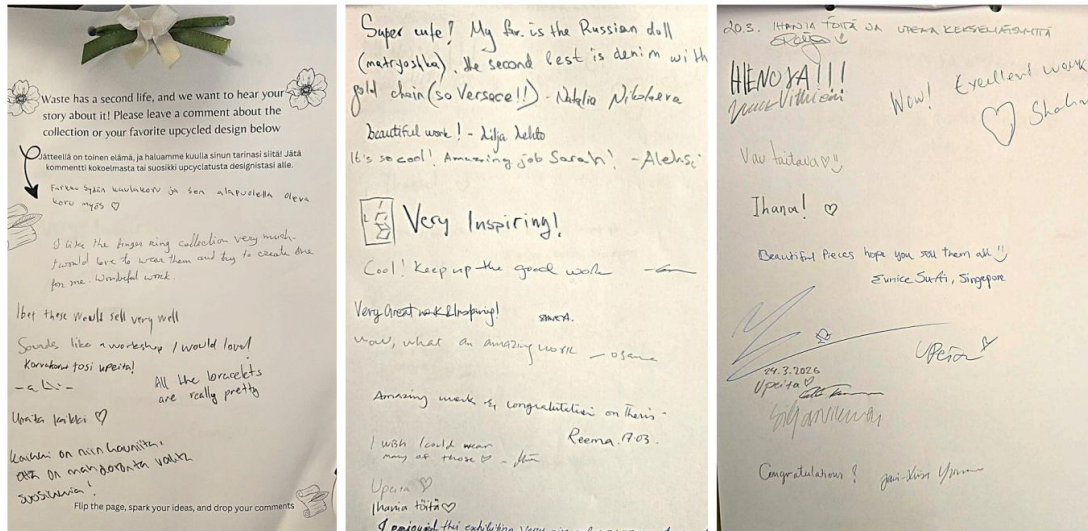 Waste has a second life, and we want to hear your
story about it! Please leave a comment about the
collection or your favorite upcycled design below
Jätteellä on toinen elämä, ja haluamme kuulla sinun tarinasi siitä! Jätä
kommentti kokoelmasta tai suosikki upcyclatusta designistasi alle.
Farkku sydän kaulakoru ja sen alapuolella oleva
koru myös ♡
I like the finger ring collection very much.
I would love to wear them and try to create one
for me. Wonderful work.
I bet these would sell very well
Sounds like a workshop I would love!
Korvakorut tosi upeita!
All the bracelets
are really pretty
Upeita kaikki ♡
Kaikki on niin kauniita,
että on mahdotonta valita
suosikkia!
Flip the page, spark your ideas, and drop your comments
Super cute! My fav. is the Russian doll
(matryoshka). The second best is denim with
gold chain (so Versace!!) - Natalia Nikolaeva
beautiful work! - Lilja Lehto
It's so cool! Amazing job Sarah! - Aleksi
Very Inspiring!
Cool! Keep up the good work
Very Great work & Inspiring!
wow, what an amazing work - Osama
Amazing work & congratulation on Thesis -
Reema. 17.03.
I wish I could wear
many of those ♡
Upeita ♡
Ihania töitä ♡
I enjoyed this exhibition very
20.3. IHANIA TÖITÄ JA UPEAA KEKSELIÄISYYTTÄ
HIENOJA!!!
Wow! Excellent work
♡
Vau taitava ♡
Ihana! ♡
Beautiful Pieces hope you sell them all
Eunice SuAi, Singapore
Upeita
24.3.2026
Upeita ♡
Congratulations!